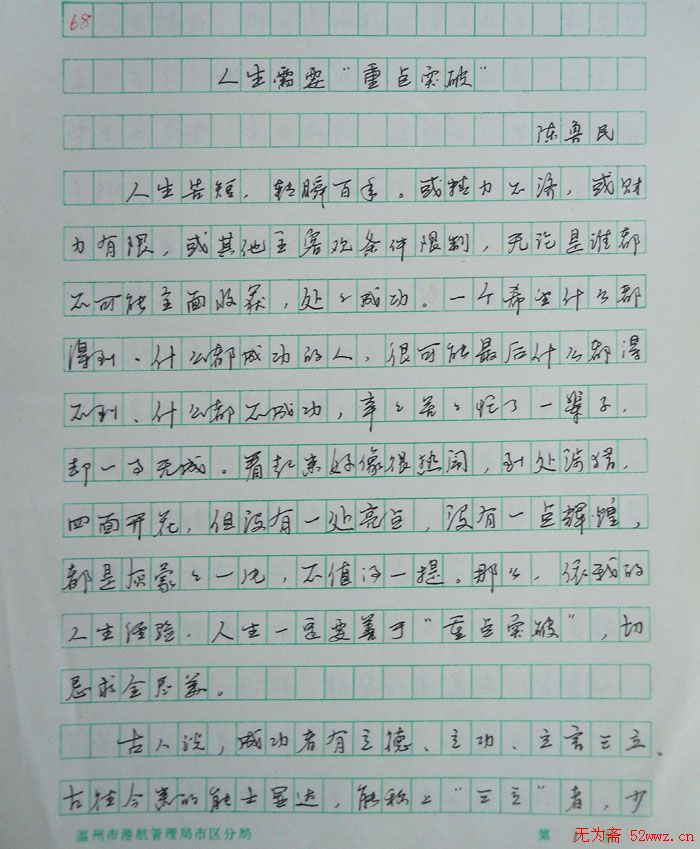 68
人生需要“重点突破”
陈鲁民
人生苦短，转瞬百年。或精力不济，或财
力有限，或其他主客观条件限制，无论是谁都
不可能全面收获，处处成功。一个希望什么都
得到、什么都成功的人，很可能最后什么都得
不到、什么都不成功，辛辛苦苦忙了一辈子，
却一事无成。看起来好像很热闹，到处涉猎，
四面开花，但没有一处亮点，没有一点辉煌，
都是灰蒙蒙一片，不值得一提。那么，依我的
人生经验，人生一定要善于“重点突破”，切
忌求全尽美。
古人说，成功者有立德、立功、立言三立、
古往今来的能士显达，能称上“三立”者，少
温州市港航管理局市区分局
第
无为斋 52wwz.cn